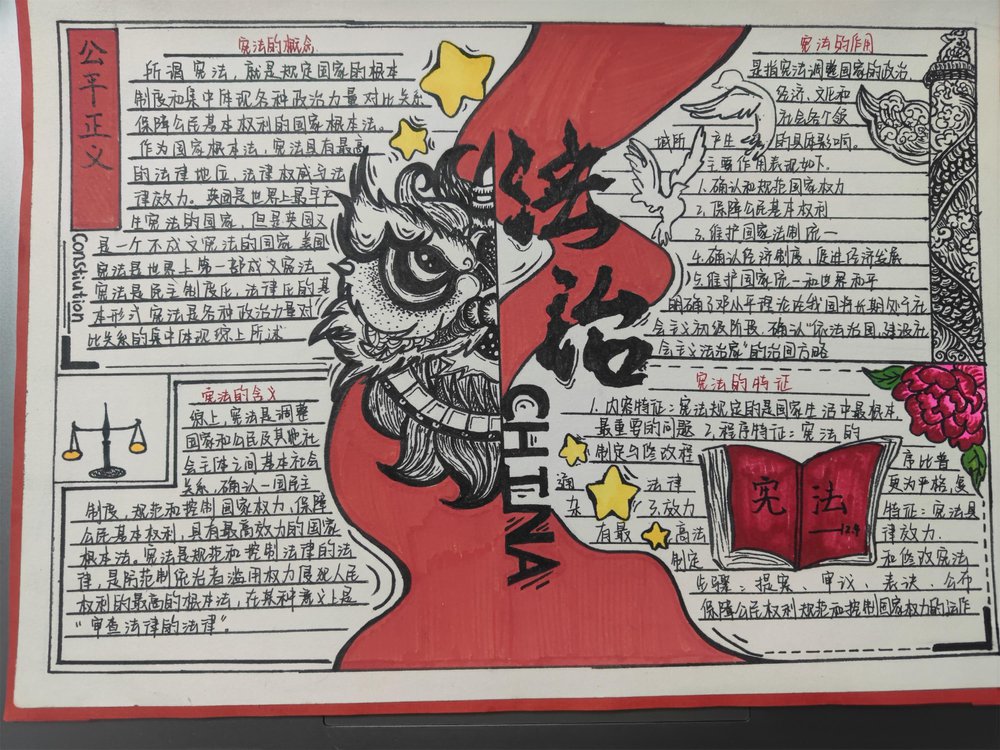 公平正义
Constiution
宪法的概念
所谓宪法，就是规定国家的根本
制度和集中体现各种政治力量对比关系
保障公民基本权利的国家根本法。
作为国家根本法，宪法具有最高
的法律地位，法律权威与法
律效力。英国是世界上最早产
生宪法的国家，但是英国又
是一个不成文宪法的国家 美国
宪法是世界上第一部成文宪法
宪法是民主制度化，法律化的基
本形式 宪法是各种政治力量对
比关系的集中体现 综上所述
宪法的含义
综上，宪法是调整
国家和公民及其他社
会主体之间基本社会
关系，确认一国民主
制度，规范和控制国家权力，保障
公民基本权利，具有最高效力的国家
根本法。宪法是规范和控制法律的法
律，是防范制统治者滥用权力侵犯人民
权利的最高的根本法，在某种意义上是
“审查法律的法律”。
法治
CHINA
宪法的作用
是指宪法调整国家的政治
经济、文化和
社会各个领
域所 产生 的具体影响。
主要作用表现如下.
1.确认和规范国家权力
2.保障公民基本权利
3.维护国家法制统一
4.确认经济制度，促进经济发展
5.维护国家统一和世界和平
明确了邓小平理论 我国将长期处于社
会主义初级阶段，确认“依法治国，建设社
会主义法治家”的治国方略
宪法的特征
1.内容特征：宪法规定的是国家生活中最根本
最重要的问题 2.程序特征：宪法的
制定与修改程 序比普
通 法律 更为严格，复
杂 3.效力 特征：宪法具
有最 高法 律效力.
制定 和修改宪法
步骤：提案、审议、表决、公布
保障公民权利规范和控制国家权力的运作
宪法
12.4